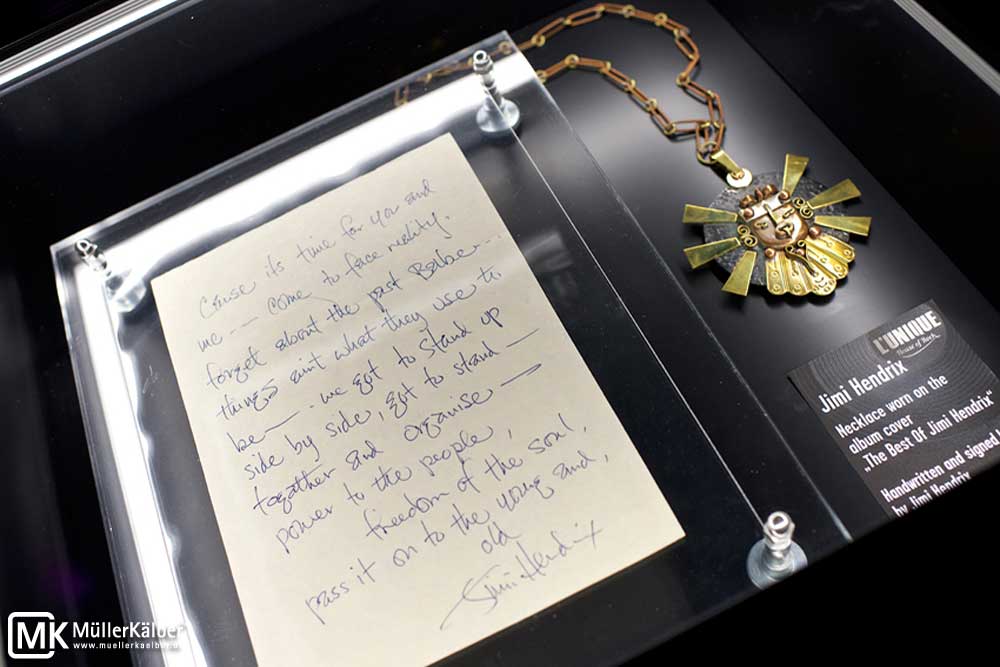 Cause its time for you and
me -- come to face reality.
forget about the past Babe--
things ain't what they use to
be—. we got to stand up
side by side, got to stand—
together and organise —
power to the people,
freedom of the soul,
pass it on to the young and,
old
Jimi Hendrix
L'UNIQUE
House of Rock
Jimi Hendrix
Necklace worn on the
album cover
„The Best Of Jimi Hendrix“
Handwritten and signed
by Jimi Hendrix
MK MüllerKälber